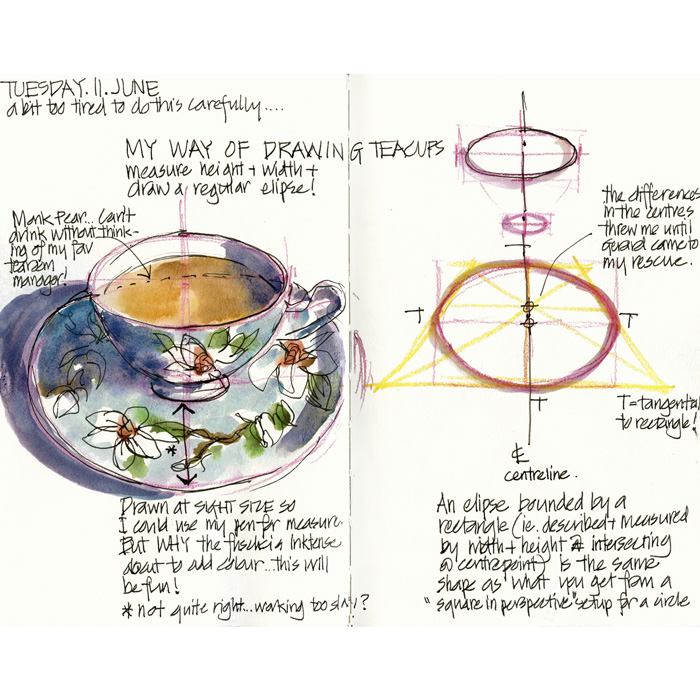 TUESDAY. 11. JUNE
a bit too tired to do this carefully....
MY WAY OF DRAWING TEACUPS
measure height + width +
draw a regular elipse!
Monk Pear... Can't
drink without think-
ing of my fav
tearoom
manager!
Drawn at SIGHT SIZE so
I could use my pen for measure.
But WHY the is Inktense
about to add colour...this will
be fun!
* not quite right...working too ?
the differences
in the centres
threw me until
came to
my rescue.
T
T
T
T
T = tangential
to rectangle!
℄
centreline.
An elipse bounded by a
rectangle (ie. described + measured
by width + height & intersecting
@ centrepoint) is the same
shape as what you get from a
"square in perspective" setup for a circle